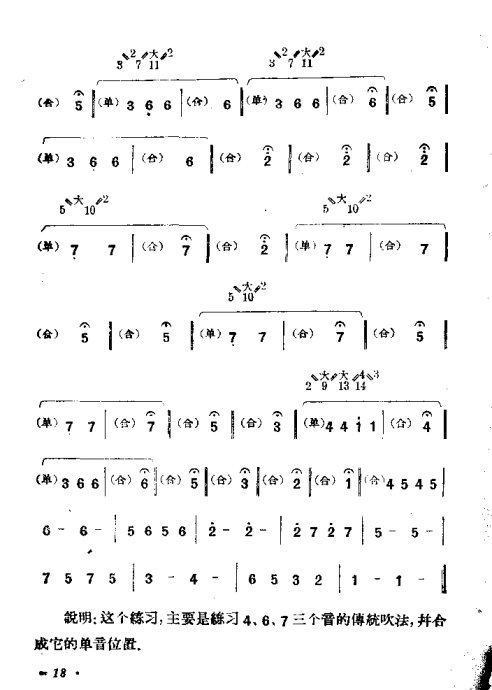 2 大 2 2 大 2
3 7 11 3 7 11
(合) 5 (单) 3 6 6 (合) 6 (单) 3 6 6 (合) 6 (合) 5
(单) 3 6 6 (合) 6 (合) 2 (合) 2 (合) 2
大 2 大 2
5 10 5 10
(单) 7 7 (合) 7 (合) 2 (单) 7 7 (合) 7
大 2
5 10
(合) 5 (合) 5 (单) 7 7 (合) 7 (合) 5
大 大 4 3
2 9 13 14
(单) 7 7 (合) 7 (合) 5 (合) 3 (单) 4 4 1 1 (合) 4
(单) 3 6 6 (合) 6 (合) 5 (合) 3 (合) 2 (合) 1 (合) 4 5 4 5
6 - 6 - 5 6 5 6 2 - 2 - 2 7 2 7 5 - 5 -
7 5 7 5 3 - 4 - 6 5 3 2 1 - 1 -
說明:这个練习,主要是練习 4、6、7 三个音的傳統吹法,并合
成它的单音位置.
18 ·